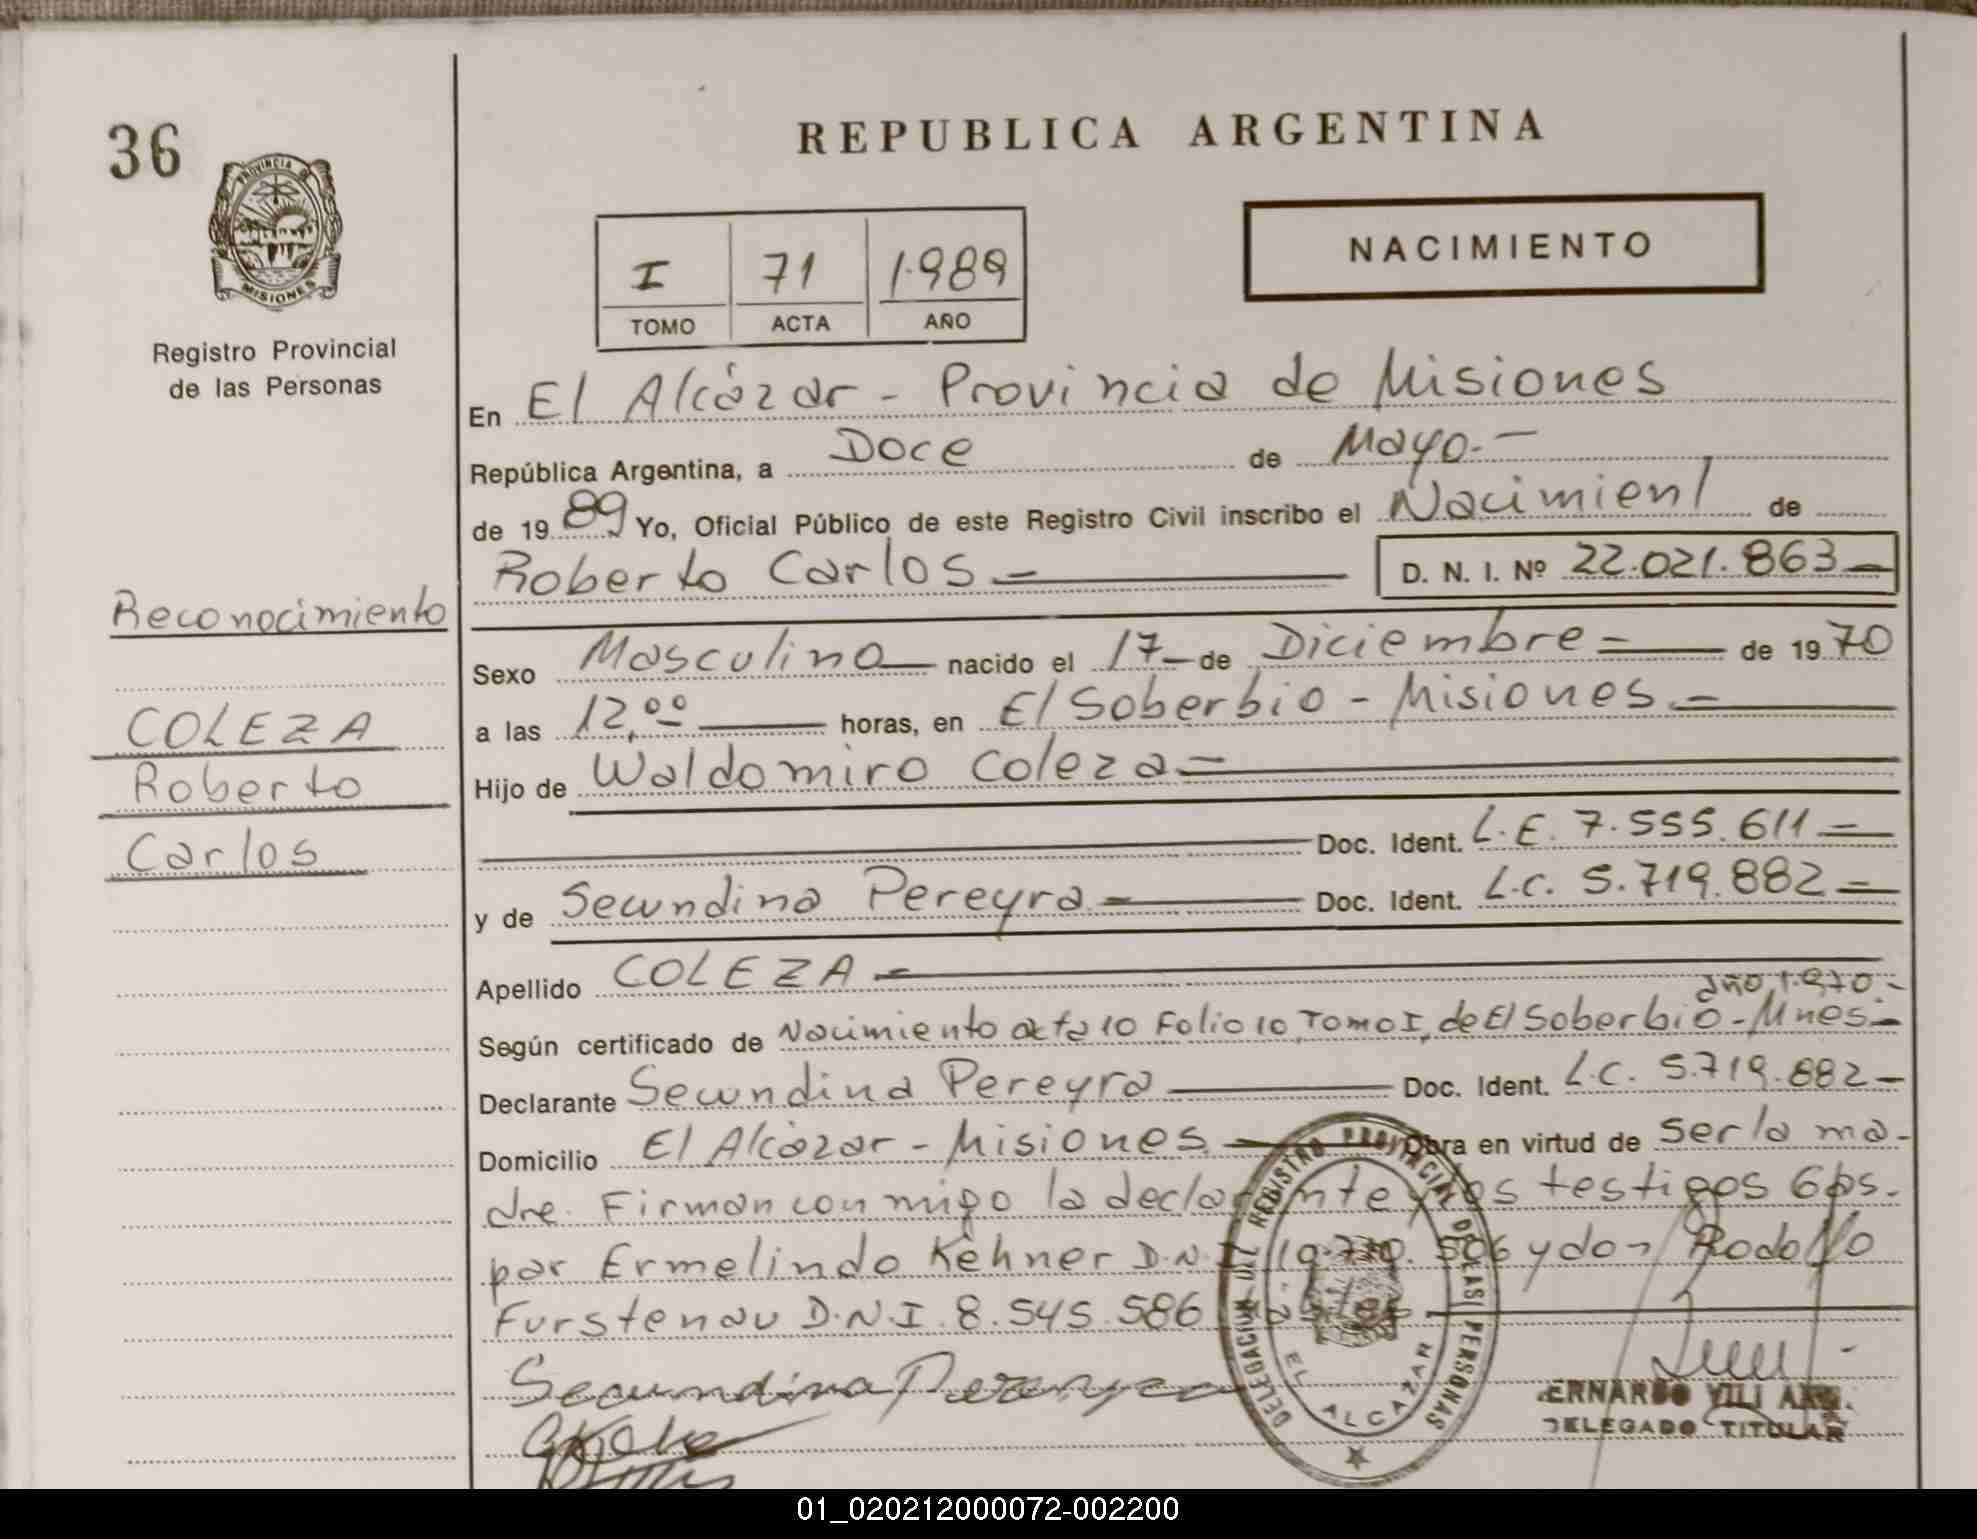 36
PROVINCIA DE
MISIONES
Registro Provincial
de las Personas
Reconocimiento
COLEZA
Roberto
Carlos
REPUBLICA ARGENTINA
I 71 1.989
TOMO ACTA AÑO
NACIMIENTO
En El Alcázar - Provincia de Misiones
República Argentina, a Doce de Mayo.-
de 19 89 Yo, Oficial Público de este Registro Civil inscribo el Nacimient de
Roberto Carlos - D. N. I. Nº 22.021.863-
Sexo Masculino nacido el 17 de Diciembre = de 19 70
a las 12,00 horas, en El Soberbio - Misiones -
Hijo de Waldomiro Coleza -
Doc. Ident. L.E. 7.555.611 -
y de Secundina Pereyra - Doc. Ident. L.C. 5.719.882 -
Apellido COLEZA -
año 1.970.-
Según certificado de Nacimiento acta 10 Folio 10, Tomo I, de El Soberbio - Mnes.-
Declarante Secundina Pereyra Doc. Ident. L.C. 5.719.882 -
Domicilio El Alcázar - Misiones. Obra en virtud de ser la ma-
dre. Firman conmigo la declarante y los testigos
por Ermelindo Kehner D.N.I. 506 y don Rodolfo
Furstenau D.N.I. 8.545.586
Secundina Pereyra
DELEGACION REGISTRO PROVINCIAL DE LAS PERSONAS
EL ALCAZAR
DELEGADO TITULAR
01_020212000072-002200